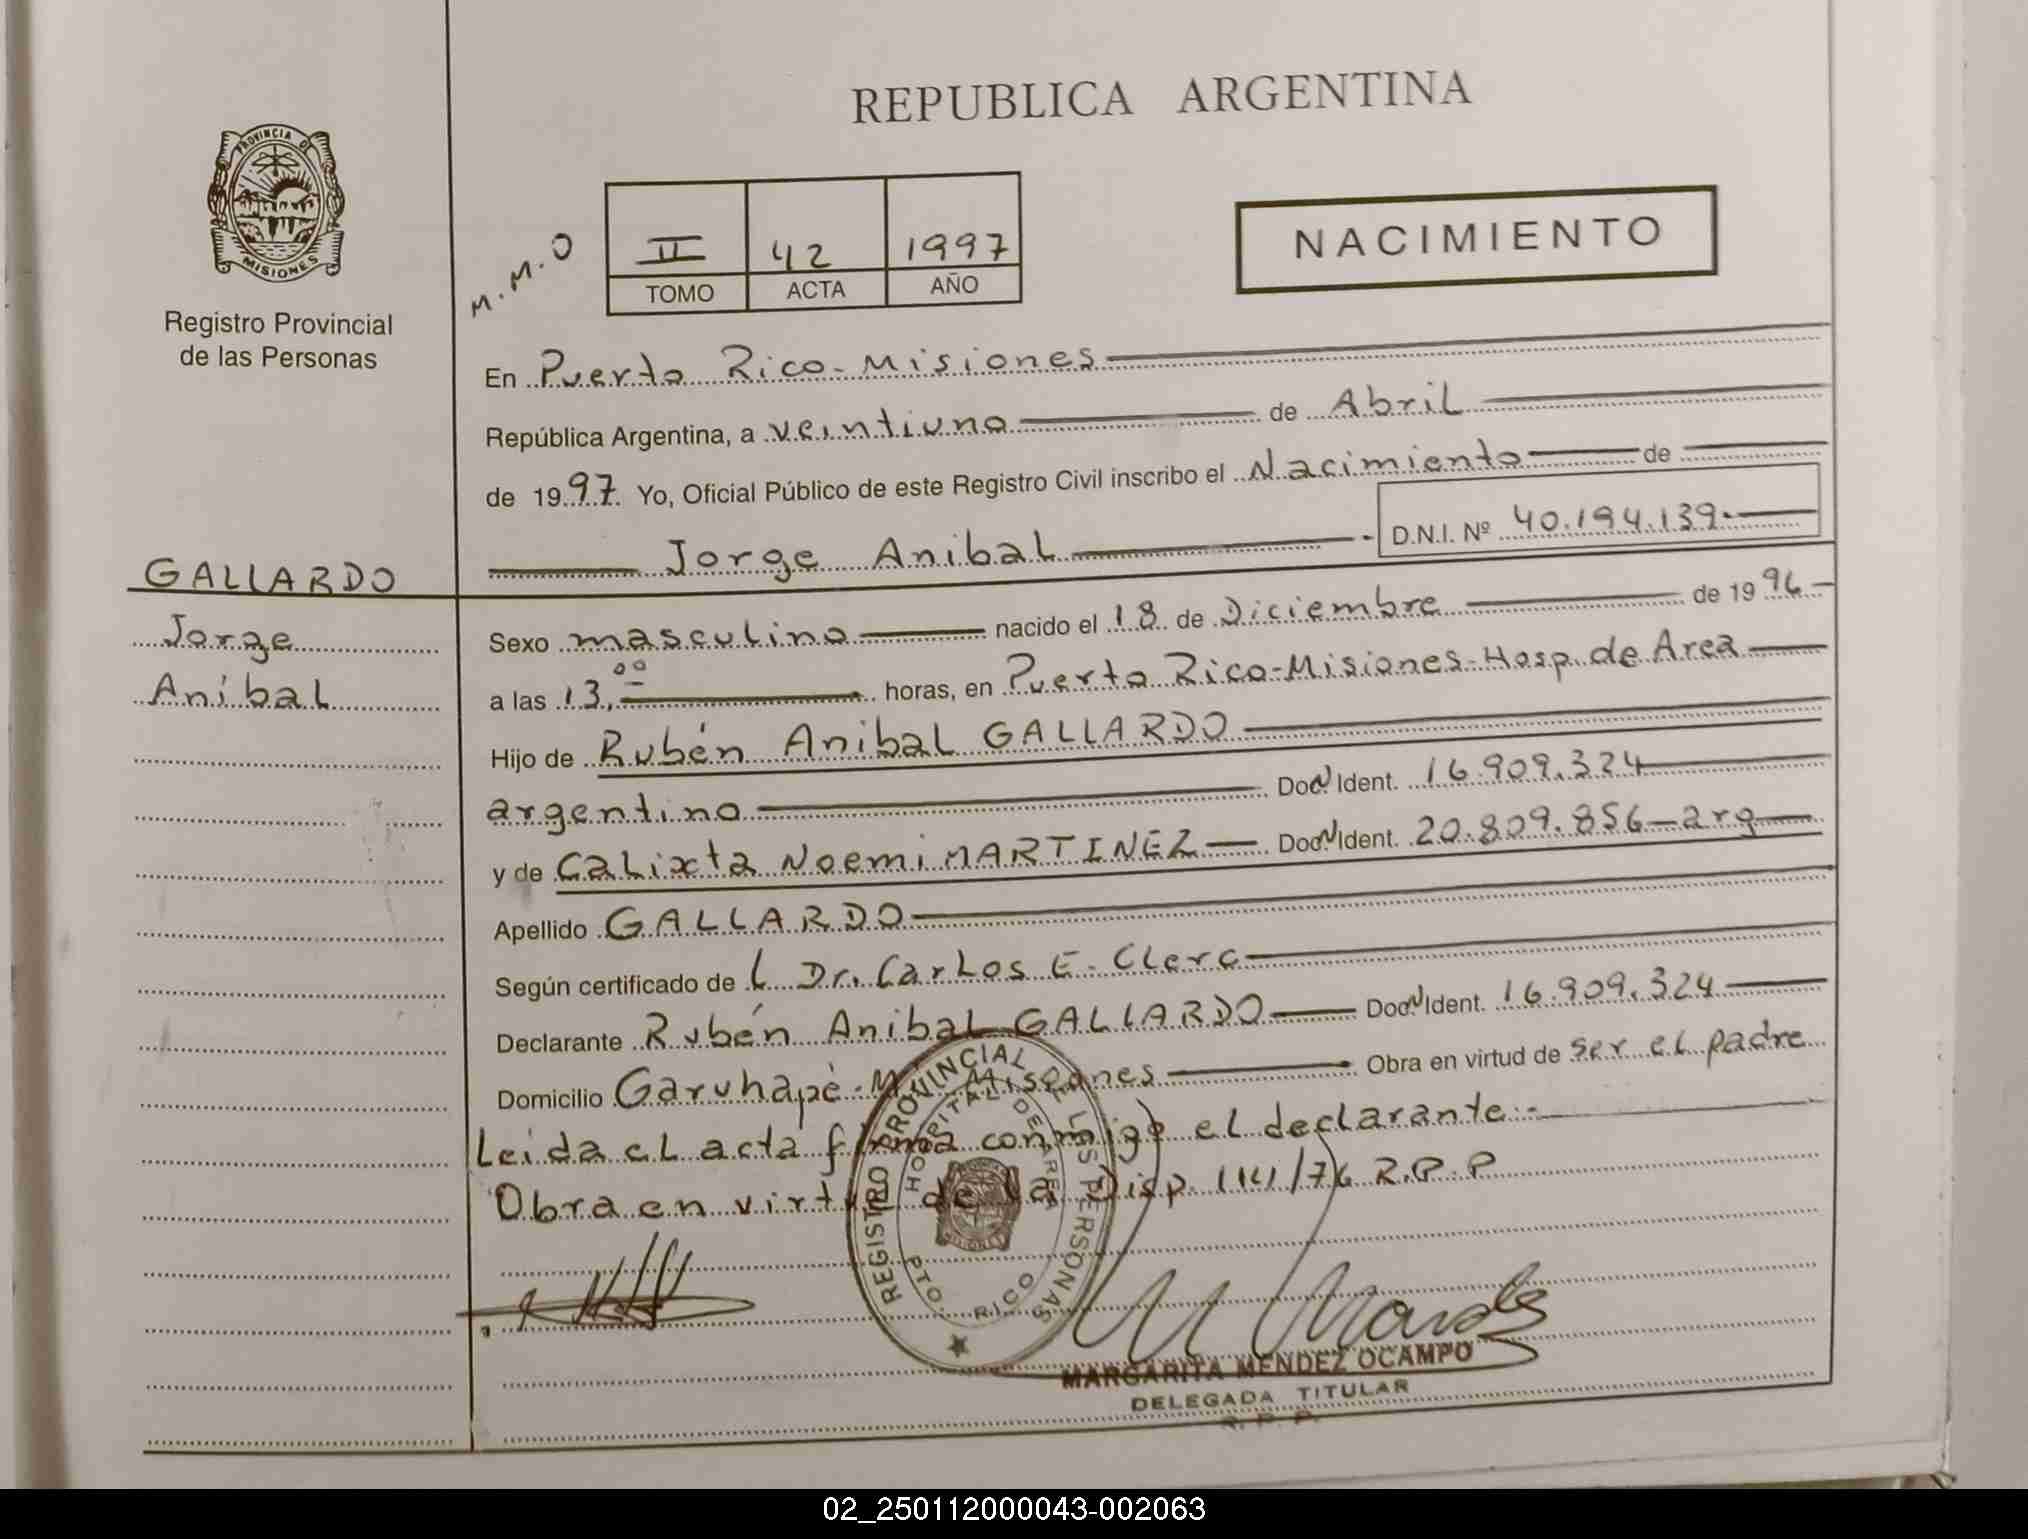 REPUBLICA ARGENTINA
PROVINCIA DE
MISIONES
Registro Provincial
de las Personas
M.M.O
II 42 1997
TOMO ACTA AÑO
NACIMIENTO
En Puerto Rico-Misiones
República Argentina, a veintiuno de Abril
de 1997. Yo, Oficial Público de este Registro Civil inscribo el Nacimiento de
Jorge Anibal D.N.I. Nº 40.194.139.
GALLARDO
Jorge
Anibal
Sexo masculino nacido el 18 de Diciembre de 1996
a las 13,00 horas, en Puerto Rico-Misiones-Hosp. de Area
Hijo de Rubén Anibal GALLARDO
argentino Doc. N Ident. 16.909.324
y de Calixta Noemi MARTINEZ Doc. N Ident. 20.809.856-arg
Apellido GALLARDO
Según certificado de L Dr. Carlos E. Clerc
Declarante Rubén Anibal GALLARDO Doc. N Ident. 16.909.324
Domicilio Garuhapé-M Misiones Obra en virtud de ser el padre
Leida el acta firma conmigo el declarante.-
Obra en virtud de la Disp. 1141/76 R.P.P
REGISTRO PROVINCIAL DE LAS PERSONAS
HOSPITAL DE AREA
PTO. RICO
MISIONES
M Mendez
MARGARITA MENDEZ OCAMPO
DELEGADA TITULAR
R. P. P.
02_250112000043-002063